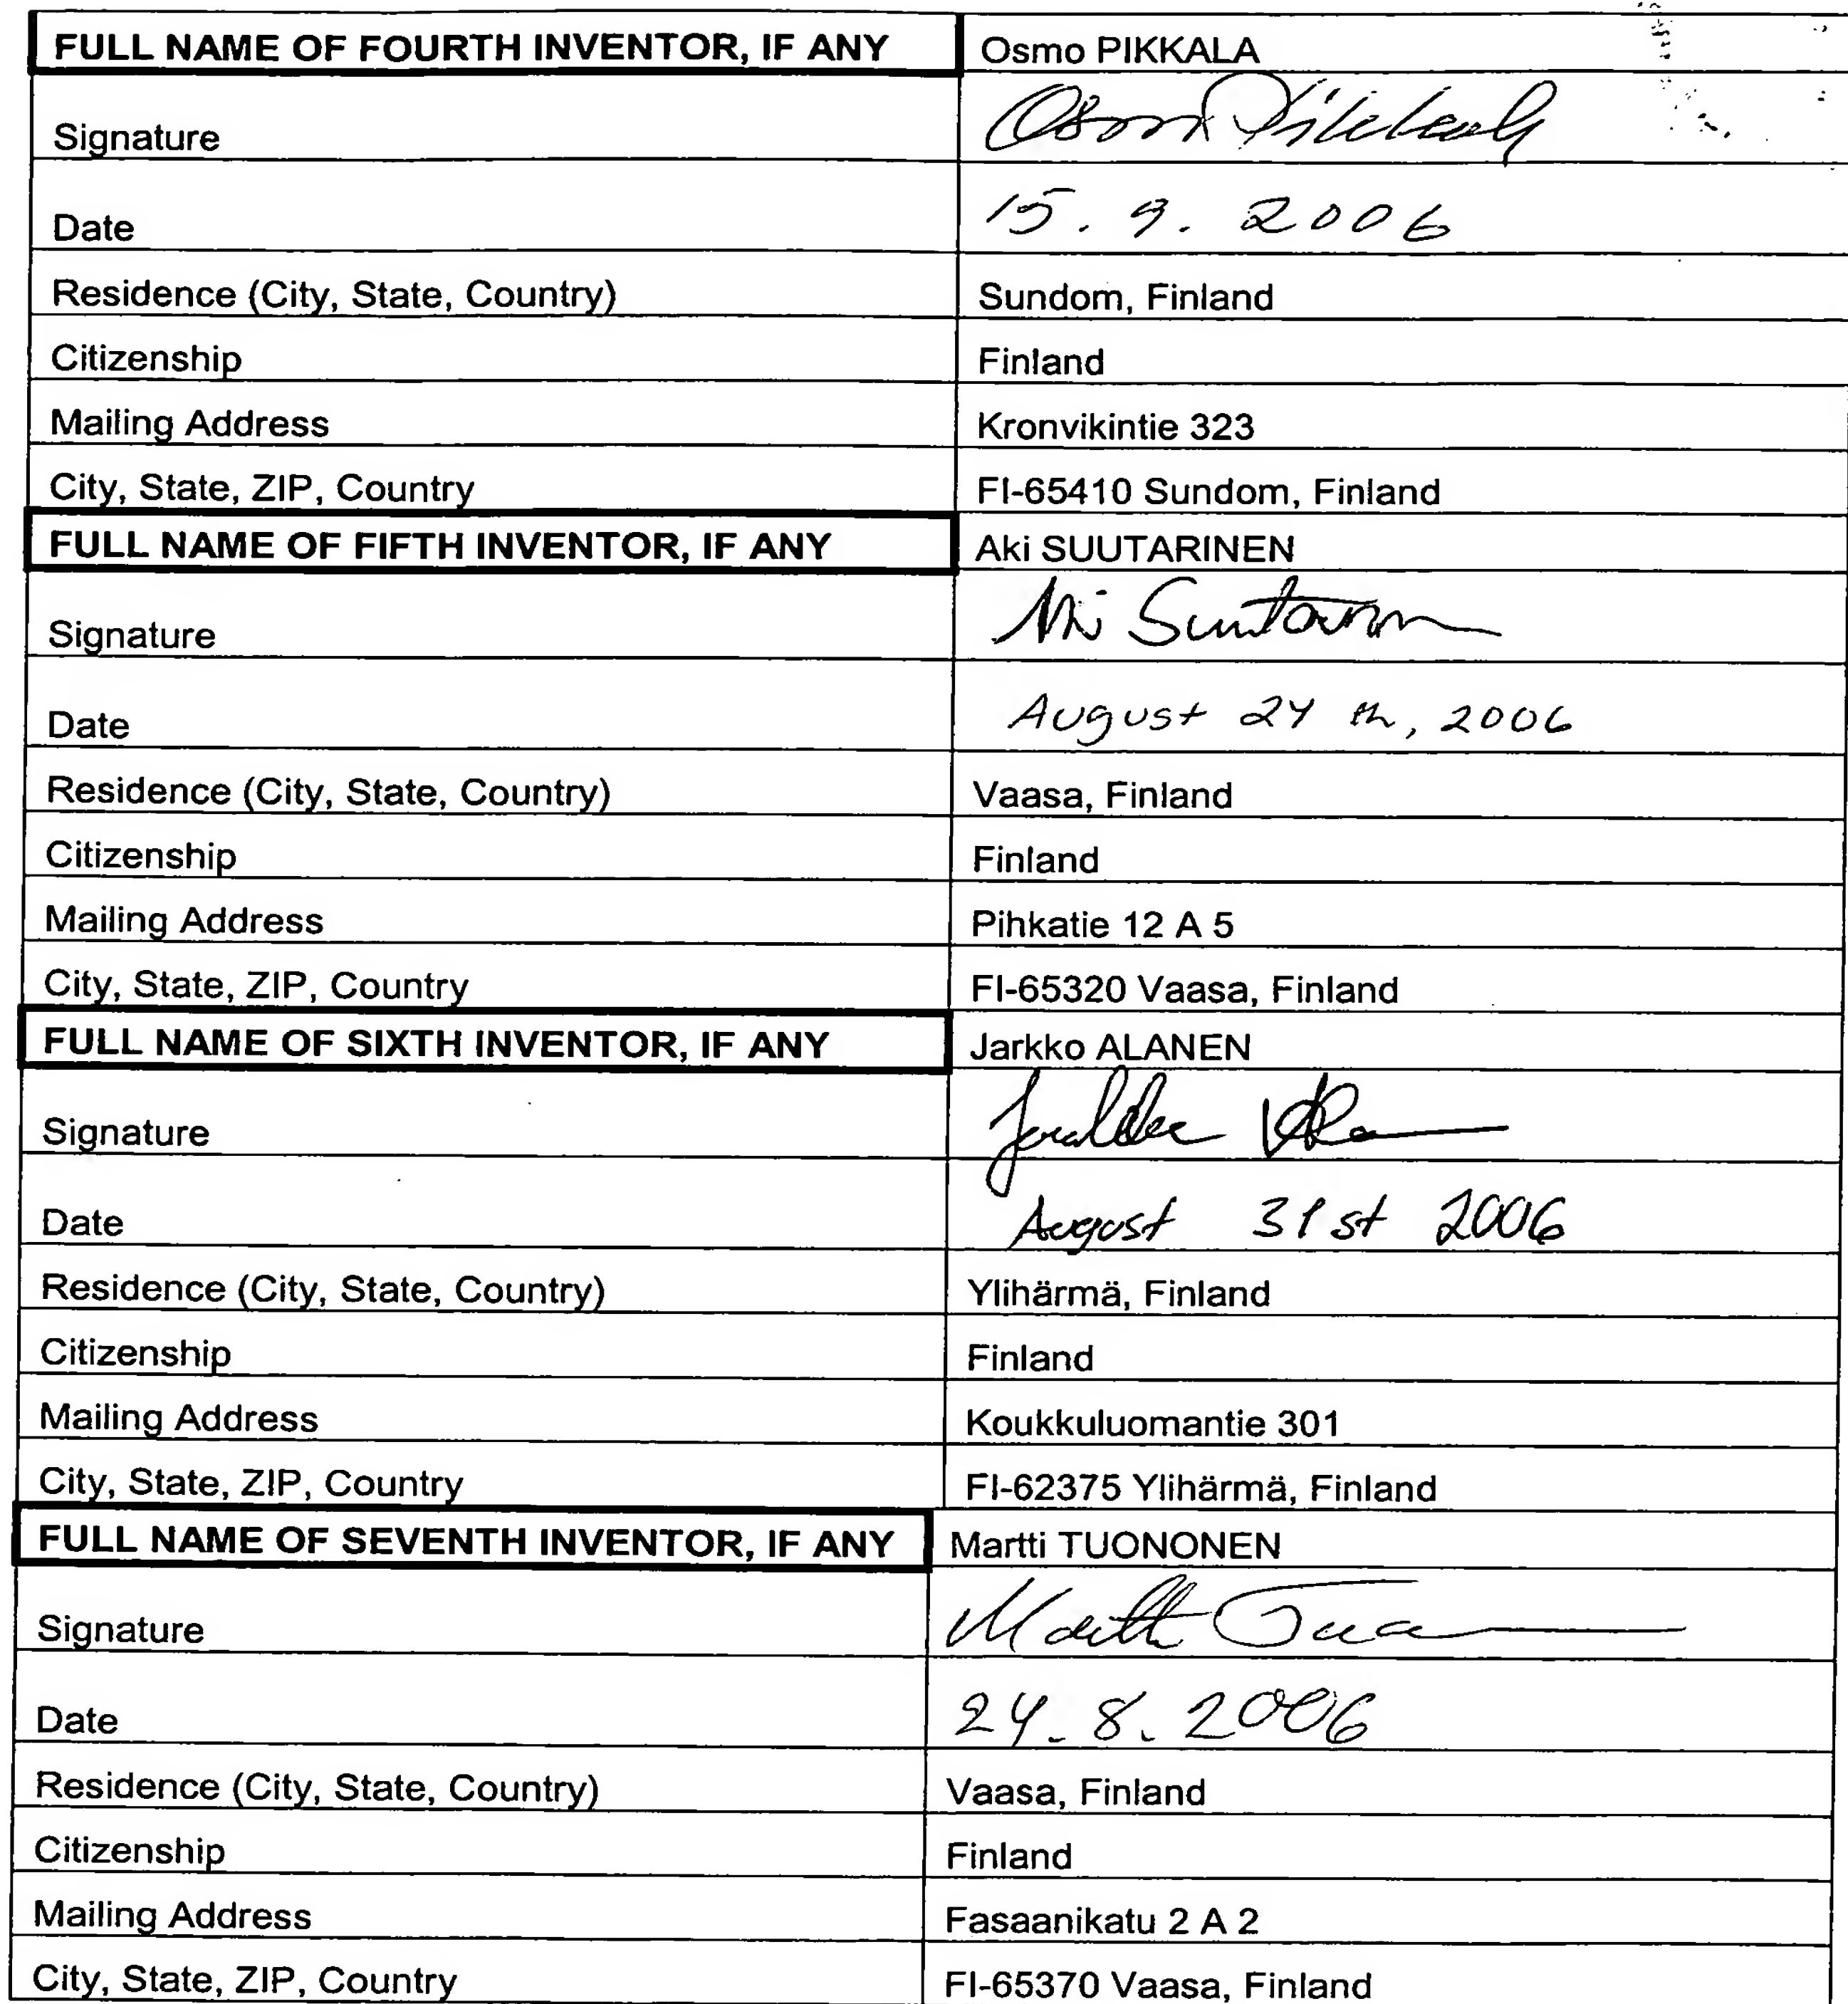 FULL NAME OF FOURTH INVENTOR, IF ANY Osmo PIKKALA
Signature Osmo Pikkala
Date 15. 9. 2006
Residence (City, State, Country) Sundom, Finland
Citizenship Finland
Mailing Address Kronvikintie 323
City, State, ZIP, Country FI-65410 Sundom, Finland
FULL NAME OF FIFTH INVENTOR, IF ANY Aki SUUTARINEN
Signature Aki Suutarinen
Date August 24 th, 2006
Residence (City, State, Country) Vaasa, Finland
Citizenship Finland
Mailing Address Pihkatie 12 A 5
City, State, ZIP, Country FI-65320 Vaasa, Finland
FULL NAME OF SIXTH INVENTOR, IF ANY Jarkko ALANEN
Signature Jarkko
Date August 31st 2006
Residence (City, State, Country) Ylihärmä, Finland
Citizenship Finland
Mailing Address Koukkuluomantie 301
City, State, ZIP, Country FI-62375 Ylihärmä, Finland
FULL NAME OF SEVENTH INVENTOR, IF ANY Martti TUONONEN
Signature Martti
Date 24. 8. 2006
Residence (City, State, Country) Vaasa, Finland
Citizenship Finland
Mailing Address Fasaanikatu 2 A 2
City, State, ZIP, Country FI-65370 Vaasa, Finland